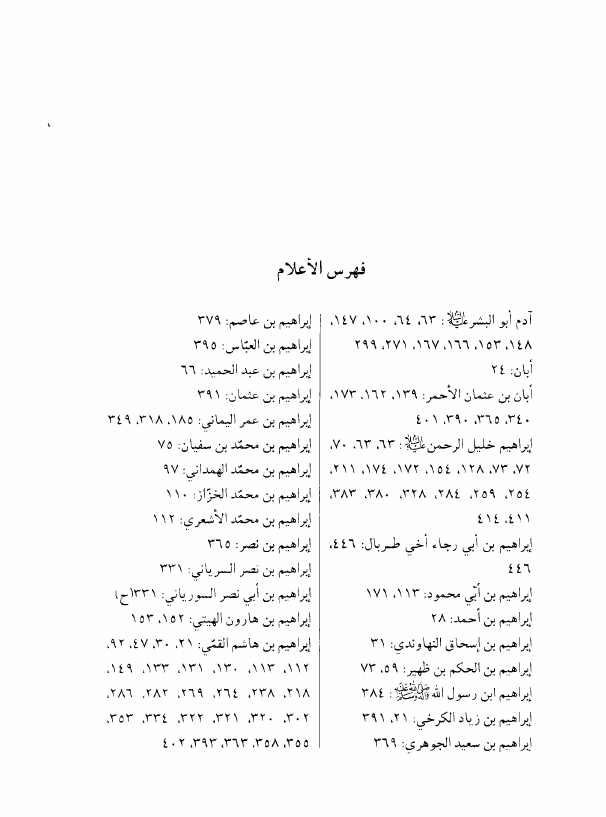 فهرس الأعلام
آدم أبو البشر عليه السلام: ٦٣، ٦٤، ١٠٠، ١٤٧،
١٤٨، ١٥٣، ١٦٦، ١٦٧، ٢٧١، ٢٩٩
أبان: ٢٤
أبان بن عثمان الأحمر: ١٣٩، ١٦٢، ١٧٣،
٣٤٠، ٣٦٥، ٣٩٠، ٤٠١
إبراهيم خليل الرحمن عليه السلام: ٦٣، ٦٣، ٧٠،
٧٢، ٧٣، ١٢٨، ١٥٤، ١٧٢، ١٧٤، ٢١١،
٢٥٤، ٢٥٩، ٢٨٤، ٣٢٨، ٣٨٠، ٣٨٣،
٤١١، ٤١٤
إبراهيم بن أبي رجاء أخي طربال: ٤٤٦،
٤٤٦
إبراهيم بن أبّي محمود: ١١٣، ١٧١
إبراهيم بن أحمد: ٢٨
إبراهيم بن إسحاق النهاوندي: ٣١
إبراهيم بن الحكم بن ظهير: ٥٩، ٧٣
إبراهيم ابن رسول الله صلى الله عليه وآله وسلم: ٣٨٤
إبراهيم بن زياد الكرخي: ٢١، ٣٩١
إبراهيم بن سعيد الجوهري: ٣٦٩
إبراهيم بن عاصم: ٣٧٩
إبراهيم بن العبّاس: ٣٩٥
إبراهيم بن عبد الحميد: ٦٦
إبراهيم بن عثمان: ٣٩١
إبراهيم بن عمر اليماني: ١٨٥، ٣١٨، ٣٤٩
إبراهيم بن محمّد بن سفيان: ٧٥
إبراهيم بن محمّد الهمداني: ٩٧
إبراهيم بن محمّد الخزّاز: ١١٠
إبراهيم بن محمّد الأشعري: ١١٢
إبراهيم بن نصر: ٣٦٥
إبراهيم بن نصر السرياني: ٣٣١
إبراهيم بن أبي نصر السورياني: ٣٣١(ح)
إبراهيم بن هارون الهيتي: ١٥٢، ١٥٣
إبراهيم بن هاشم القمّي: ٢١، ٣٠، ٤٧، ٩٢،
١١٢، ١١٣، ١٣٠، ١٣١، ١٣٣، ١٤٩،
٢١٨، ٢٣٨، ٢٦٤، ٢٦٩، ٢٨٢، ٢٨٦،
٣٠٢، ٣٢٠، ٣٢١، ٣٢٢، ٣٣٤، ٣٥٣،
٣٥٥، ٣٥٨، ٣٦٣، ٣٩٣، ٤٠٢